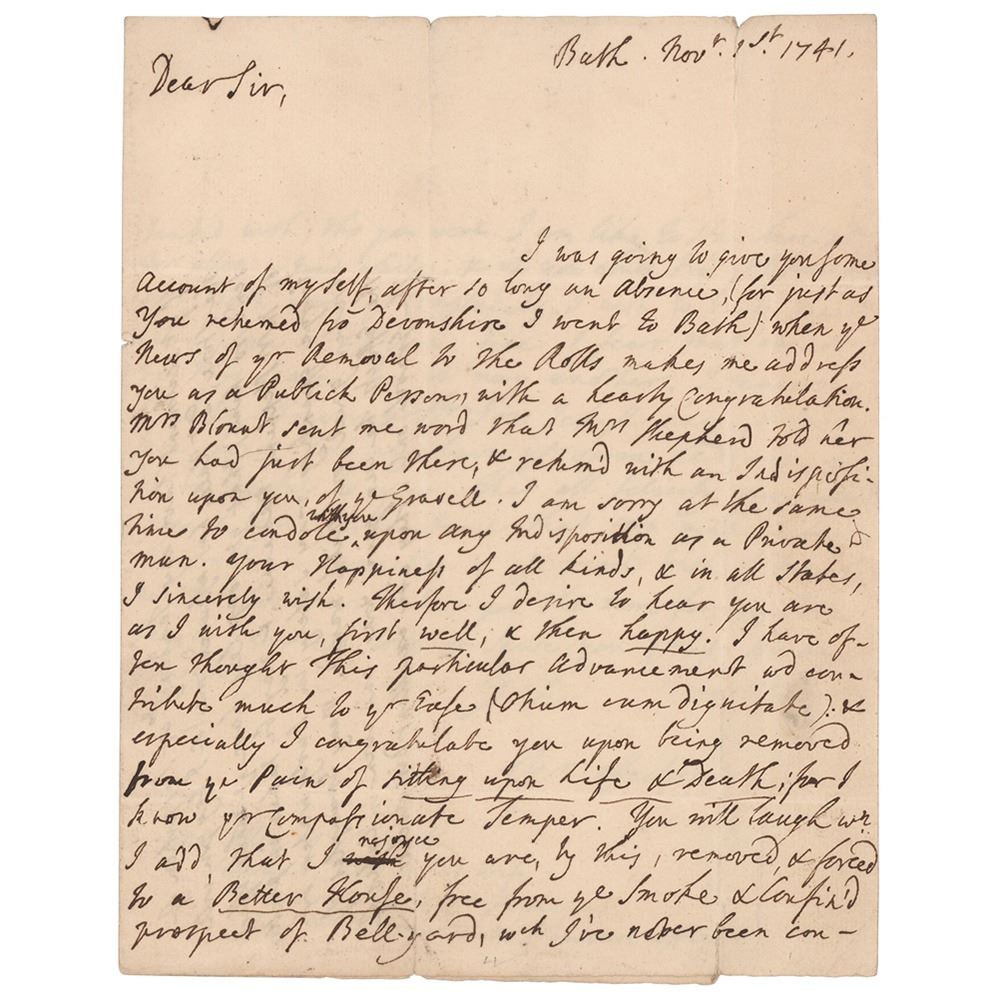 Bath. Novr. 1st. 1741.
Dear Sir,
I was going to give you some
Account of myself, after so long an Absence, (for just as
You returned fro Devonshire I went to Bath) when ye
News of yr Removal to the Rolls makes me address
you as a Publick Person, with a hearty Congratulation.
Mrs Blount sent me word that Mrs Shepherd told her
you had just been there, & return'd with an Indisposi-
tion upon you, of ye Gravell. I am sorry at the same
time to condole with you upon any Indisposition as a Private
man. Your Happiness of all kinds, & in all States,
I sincerely wish. Therefore I desire to hear you are
as I wish you, first well, & then happy. I have of-
ten thought this particular Advancement wd con-
tribute much to yr Ease (Otium cum dignitate): &
especially I congratulate you upon being removed
from ye Pain of sitting upon Life & Death; for I
know yr Compassionate Temper. You will laugh wn
I add, that I rejoyce you are, by this, removed, & forced
to a Better House, free from ye Smoke & Confin'd
prospect of Bell-yard, wch I've never been con-